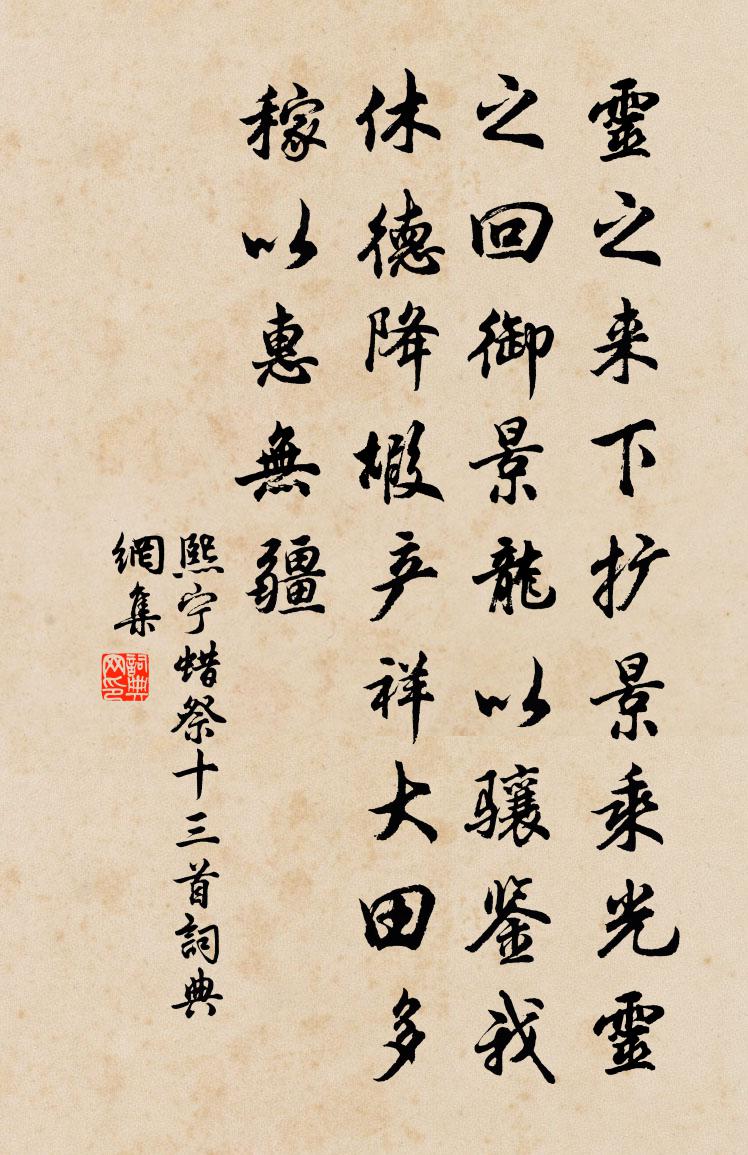 靈之来下扩景乘光靈
之回御景龍以骧鉴我
休德降嘏产祥大田多
稼以惠無疆
熙宁蜡祭十三首詞典
網集
詞典网印